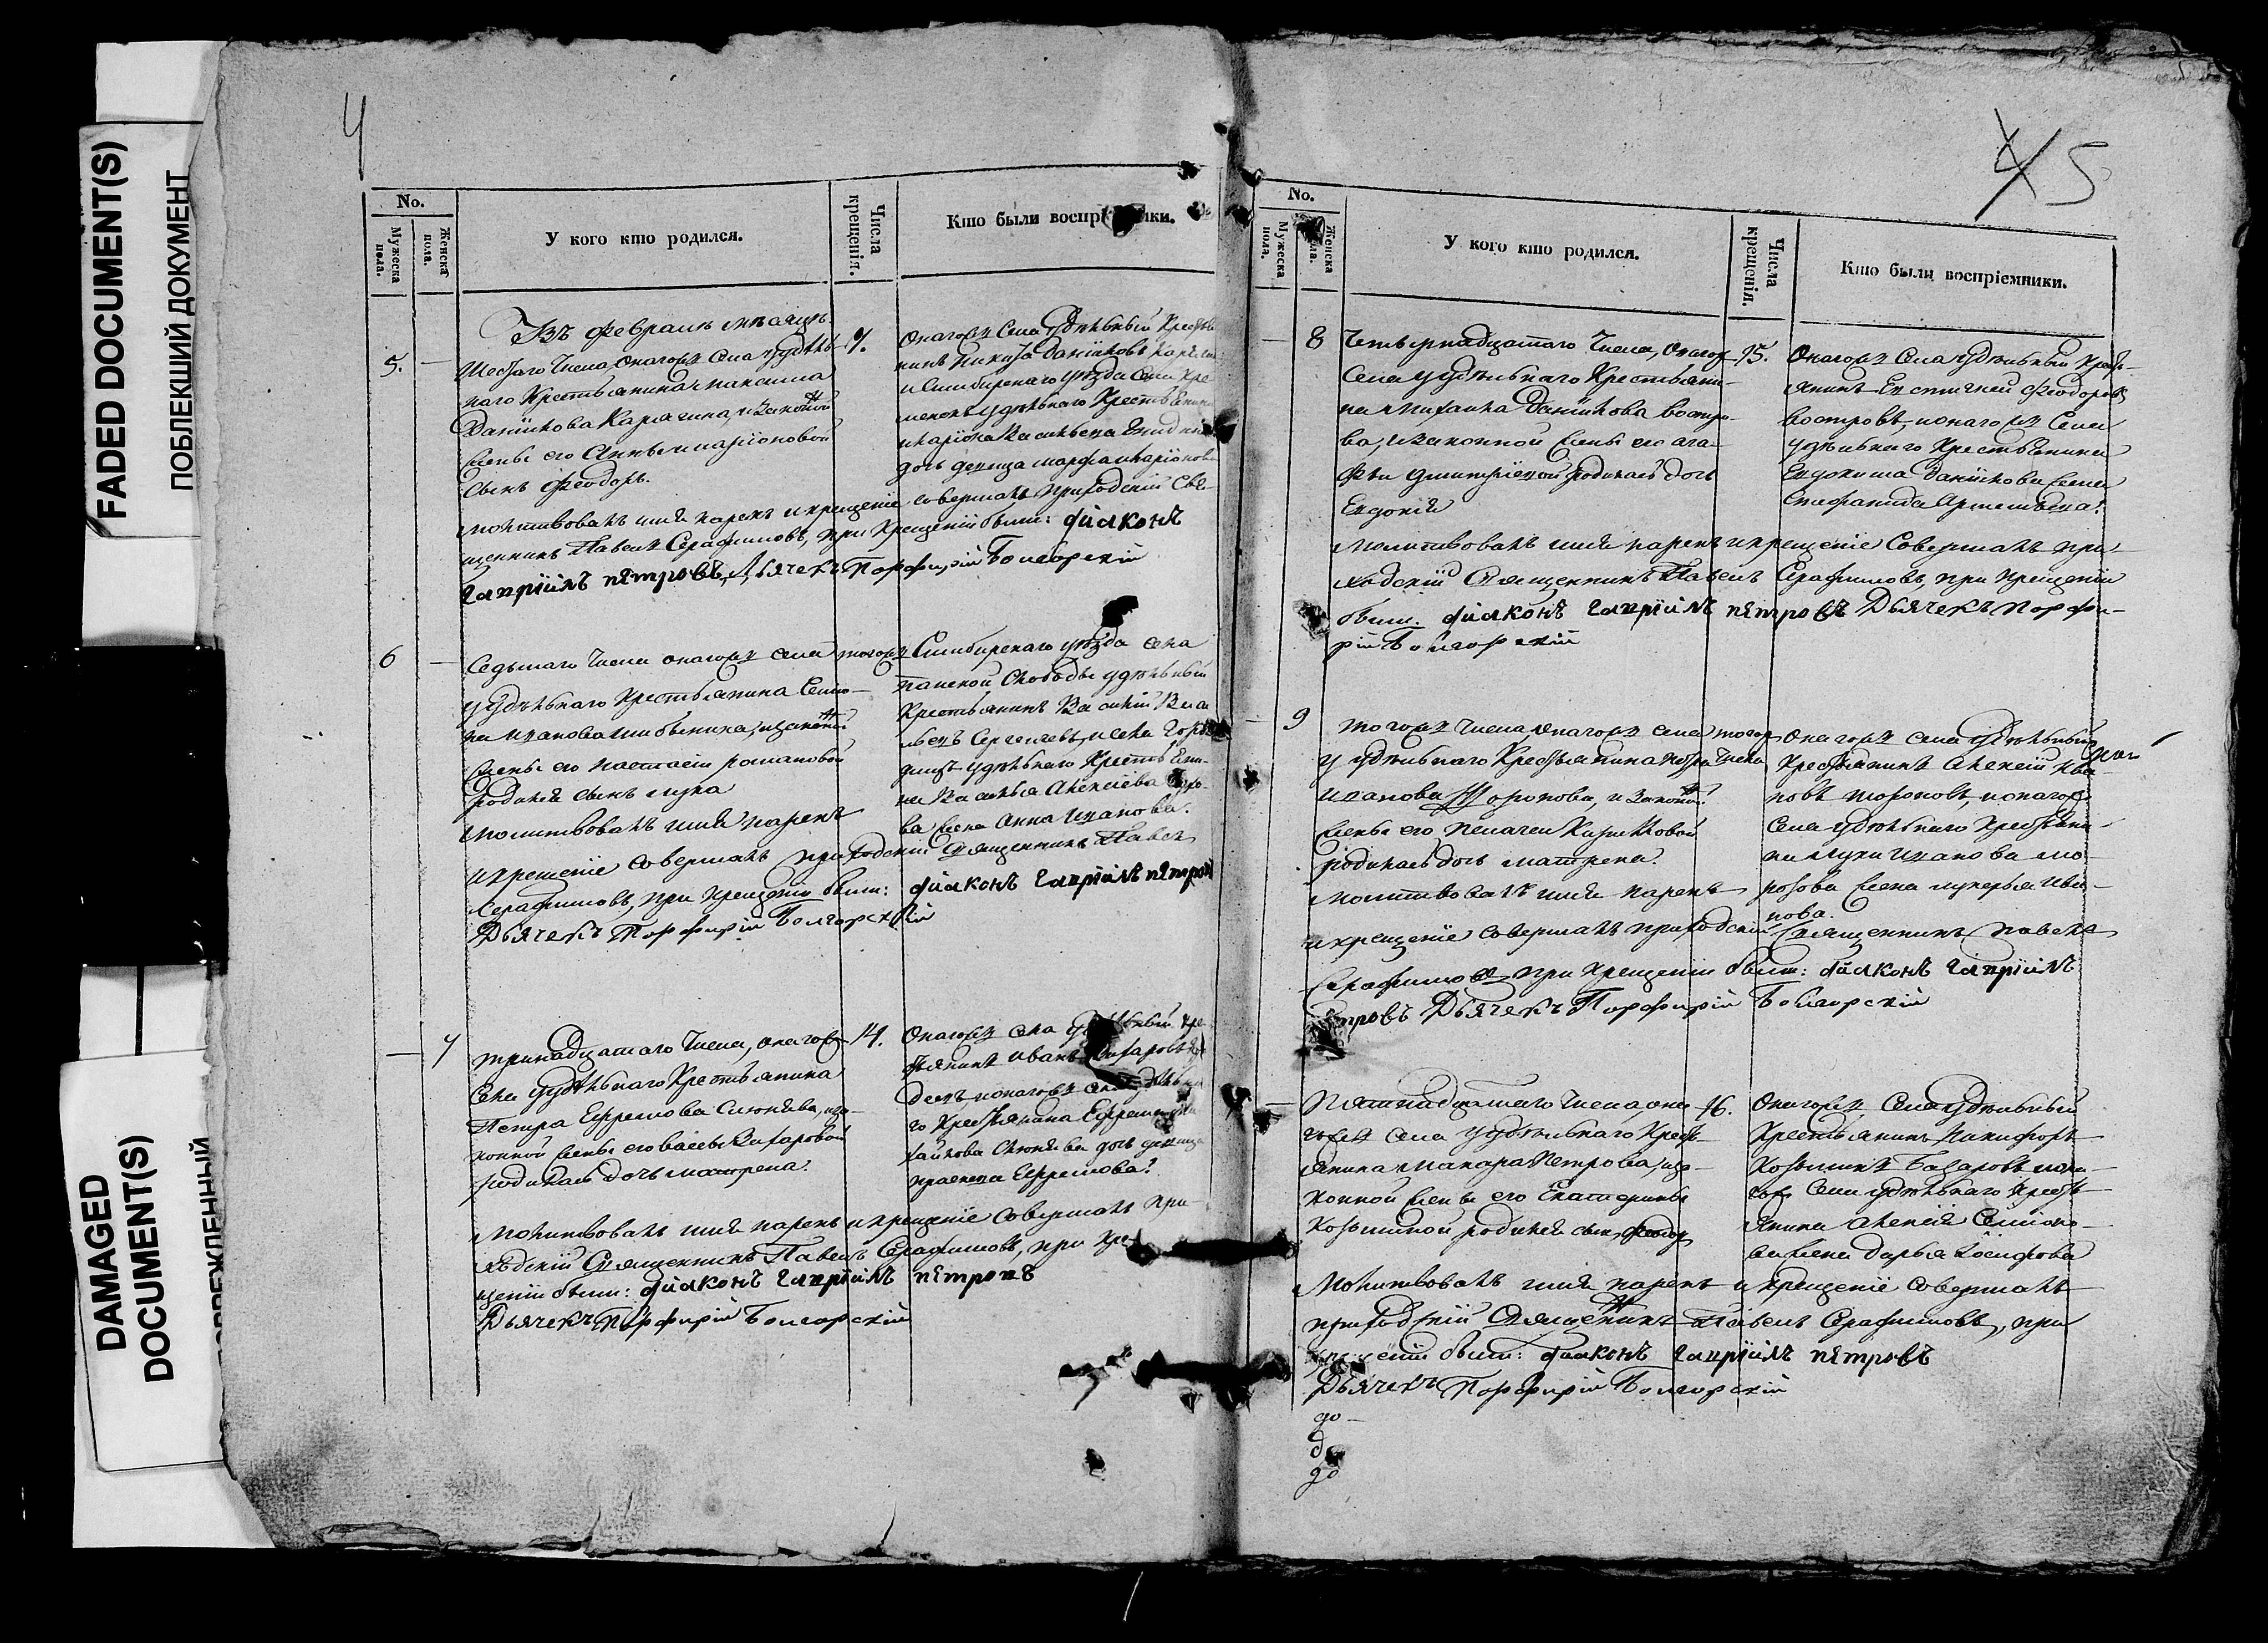 FADED DOCUMENT(S)
ПОБЛЕКШИЙ ДОКУМЕНТ
DAMAGED
DOCUMENT(S)
4
No.
Мужеска пола.
Женска пола.
У кого кто родился.
Числа крещенія.
Кто были
Въ февралѣ мѣсяцѣ.
5. — Шестаго числа онагожъ села удѣль-
наго Крестьянина Максима
Данилова Карягина, и законной
жены его Анны Иларіоновой
сынъ Феодоръ.
7.
Онагожъ села удѣльный Кресть
нинъ Никита Даниловъ
и Симбирскаго уѣзда села Кре
менокъ удѣльнаго Крестьянина
Иларіона Васильева
дочь девица Марфа Иларіонова
Молитвовалъ имя нарекъ и крещеніе совершалъ приходскій Свя-
щенникъ Павелъ Серафимовъ, при крещеніи были: діаконъ
гавріилъ пётровъ, Дьячекъ Порфирій Болгарскій
6 — Седьмаго числа онагожъ села
удѣльнаго Крестьянина Семио-
на Иванова и законной
жены его Настасіи Романовой
родился сынъ Лука
тогожъ
Симбирскаго уѣзда села
Панской Слободы удѣльный
Крестьянинъ Василій Васи
льевъ Сергеевъ, и села
удѣльнаго Крестьяни-
на Василья Алексіева
жена Анна Иванова.
Молитвовалъ имя нарекъ
и крещеніе совершалъ приходскій Священникъ Павелъ
Серафимовъ, при крещеніи были: діаконъ гавріилъ пётровъ
Дьячекъ Порфирій Болгарскій
— 7 Тринадцатаго числа, онагожъ
села удѣльнаго Крестьянина
Петра Ефремова Слюняева, и за-
конной жены его Васы Захаровой
родилась дочь Матрена.
14.
Онагожъ села удѣльный Кре
стьянинъ Иванъ Захаровъ
онагожъ села
го Крестьянина Ефрема
хайлова Слюняева дочь девица
Ефремова.
Молитвовалъ имя нарекъ и крещеніе совершалъ при-
ходскій Священникъ Павелъ Серафимовъ, при кре
щеніи были: діаконъ гавріилъ пётровъ
Дьячекъ Порфирій Болгарскій
4 5
No.
Мужеска пола.
Женска
У кого кто родился.
Числа крещенія.
Кто были воспріемники.
— 8 Четырнадцатаго числа, онагожъ
села удѣльнаго Крестьяни-
на Михаила Данилова Востро-
ва, и законной жены его Ага-
фьи Дмитріевой родилась дочь
Евдокія
15.
Онагожъ села удѣльный Кресть-
янинъ Евстигней Феодоровъ
Востровъ, и онагожъ села
удѣльнаго Крестьянина
Евдокима Данилова жена
Степанида Артемьева.
Молитвовалъ имя нарекъ и крещеніе совершалъ при-
ходскій Священникъ Павелъ Серафимовъ, при крещеніи
были: діаконъ гавріилъ пётровъ Дьячекъ Порфи-
рій Болгарскій
— 9 Тогожъ числа онагожъ села
удѣльнаго Крестьянина Петра
Иванова Торопова, и законной
жены его Пелагеи Кириловой
родилась дочь Матрена.
тогожъ
числа
Онагожъ села удѣльный
Крестьянинъ Алексій Ива-
новъ Тороповъ, и онагожъ
села удѣльнаго Крестьяни-
на Луки Иванова Мо-
розова жена Лукерья Ива-
нова.
Молитвовалъ имя нарекъ
и крещеніе совершалъ приходскій Священникъ Павелъ
Серафимовъ при крещеніи были: діаконъ гавріилъ
тровъ Дьячекъ Порфирій Болгарскій
— Пятнадцатаго числа она-
гожъ села удѣльнаго Кресть-
янина Макара Петрова, и за-
конной жены его Екатерины
Козьминой родился сынъ Феодоръ
16.
Онагожъ села удѣльный
Крестьянинъ Никифоръ
Козьминъ Базаровъ и она-
гожъ села удѣльнаго Кресть-
янина Алексія Семионо-
ва жена Дарья Іосифова
Молитвовалъ имя нарекъ и крещеніе совершалъ
приходскій Священникъ Павелъ Серафимовъ, при
крещеніи были: діаконъ гавріилъ пётровъ
Дьячекъ Порфирій Болгарскій
до-
до